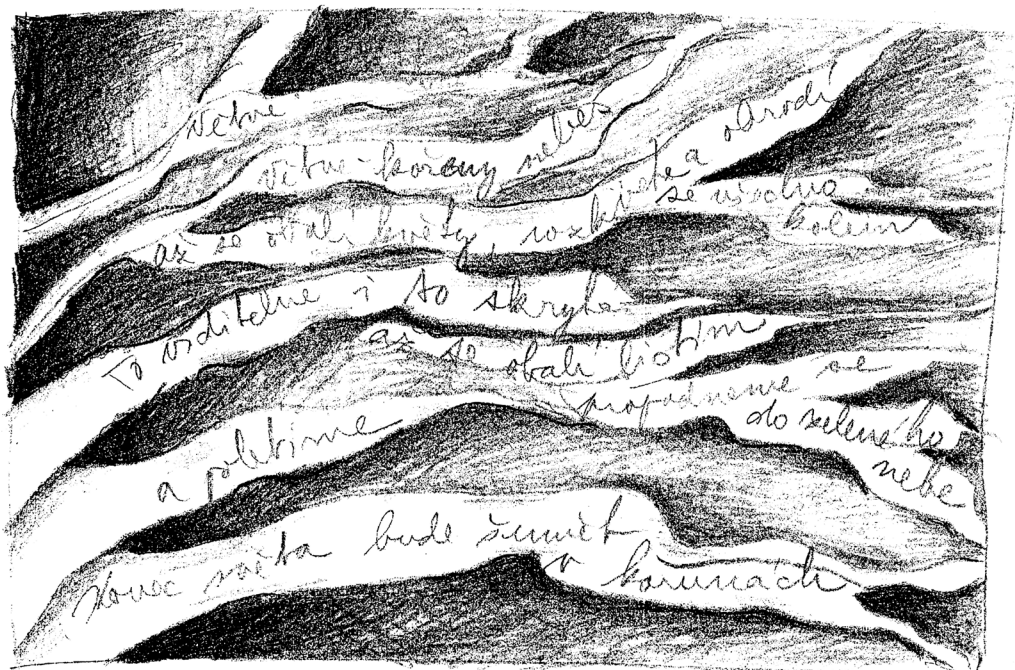 Větve
větve-kořeny nebes
až se obalí květy, rozbije se a obrodí
se všechno
kolem
To viditelné i to skryté
až se obalí listím
a poletíme
propadneme se
do zeleného
nebe
Konec světa bude šumět
v korunách